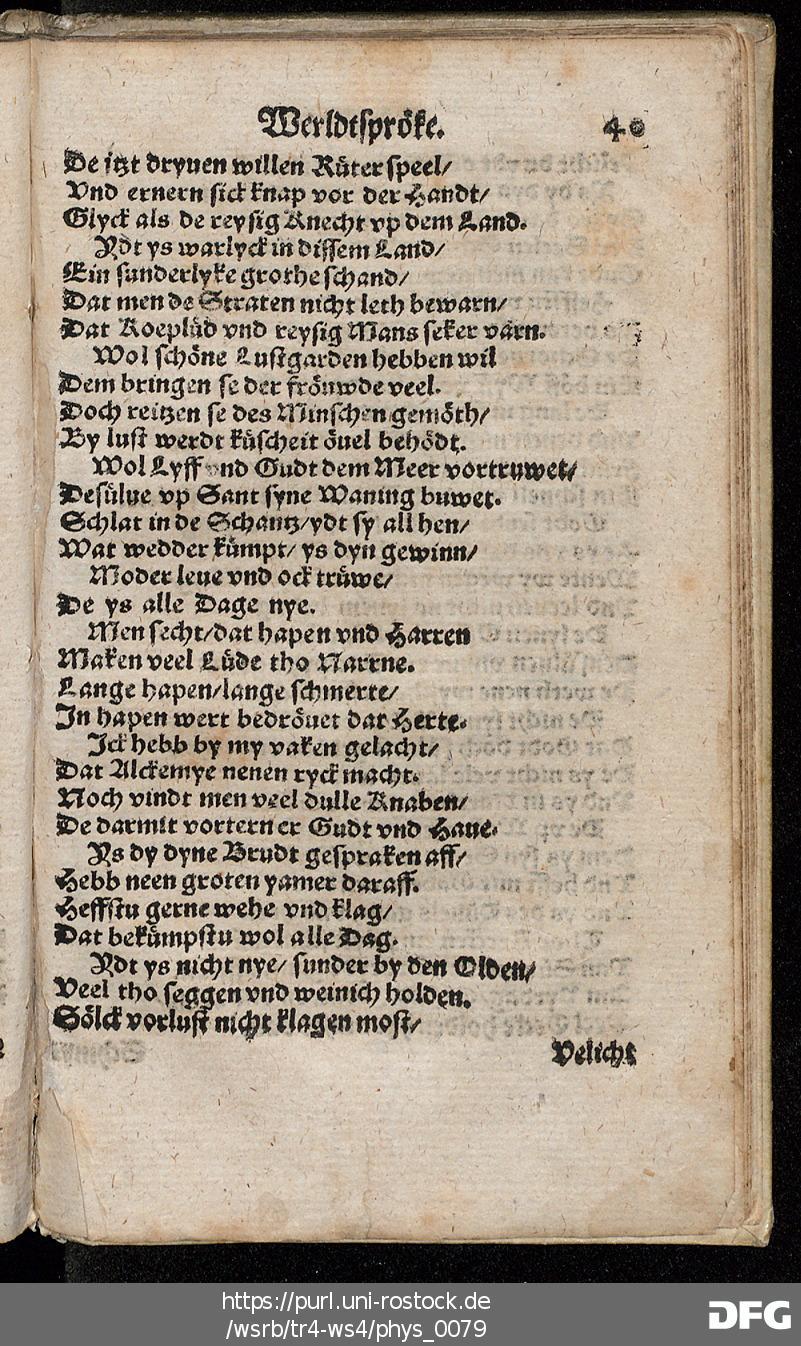 Werldtspröke. 40
De jtzt dryuen willen Rüter speel/
Vnd ernern sick knap vor der Handt/
Glyck als de reysig Knecht vp dem Land.
Ydt ys warlyck in dissem Land/
Ein sunderlyke grothe schand/
Dat men de Straten nicht leth bewarn/
Dat Koeplüd vnd reysig Mans seker varn.
Wol schöne Lustgarden hebben wil
Dem bringen se der fröuwde veel.
Doch reitzen se des Minschen gemöth/
By lust werdt küscheit öuel behödt.
Wol Lyff vnd Gudt dem Meer vortruwet/
Desülue vp Sant syne Waning buwet.
Schlat in de Schantz/ydt sy all hen/
Wat wedder kümpt/ ys dyn gewinn/
Moder leue vnd ock trüwe/
De ys alle Dage nye.
Men secht/dat hapen vnd Harren
Maken veel Lüde tho Narrne.
Lange hapen/lange schmerte/
In hapen wert bedröuet dat Herte.
Ick hebb by my vaken gelacht/
Dat Alckemye nenen ryck macht.
Noch vindt men veel dulle Knaben/
De darmit vortern er Gudt vnd Haue.
Ys dy dyne Brudt gespraken aff/
Hebb neen groten yamer daraff.
Heffstu gerne wehe vnd klag/
Dat bekümpstu wol alle Dag.
Ydt ys nicht nye/ sunder by den Olden/
Veel tho seggen vnd weinich holden.
Sölck vorlust nicht klagen most/
Velicht
https://purl.uni-rostock.de
/wsrb/tr4-ws4/phys_0079
DFG